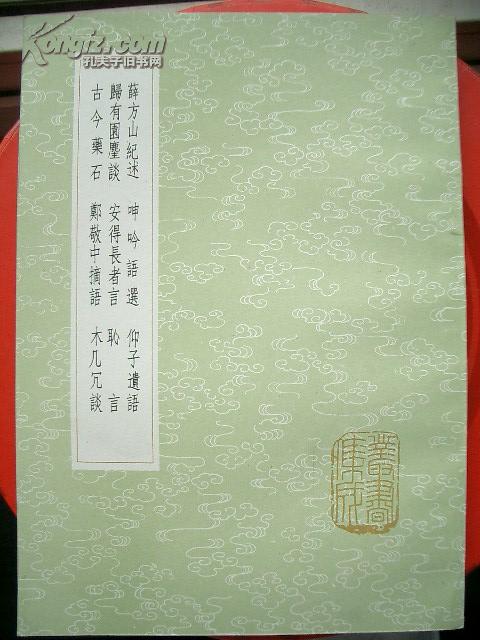 Kongfz.com
孔夫子旧书网
薛方山紀述 呻吟語選 仰子遺語
歸有園麈談 安得長者言 恥言
古今藥石 鄭敬中摘語 木几冗談
叢書集成